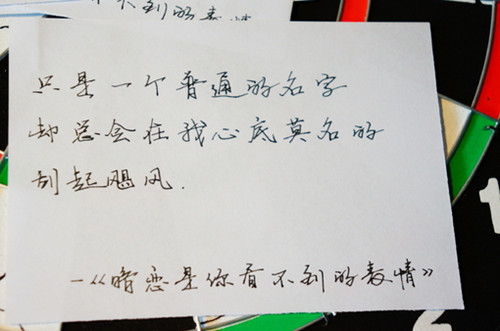 不到的表情
只是一个普通的名字
却总会在我心底莫名的
刮起飓风.
—《暗恋是你看不到的表情》
1
2